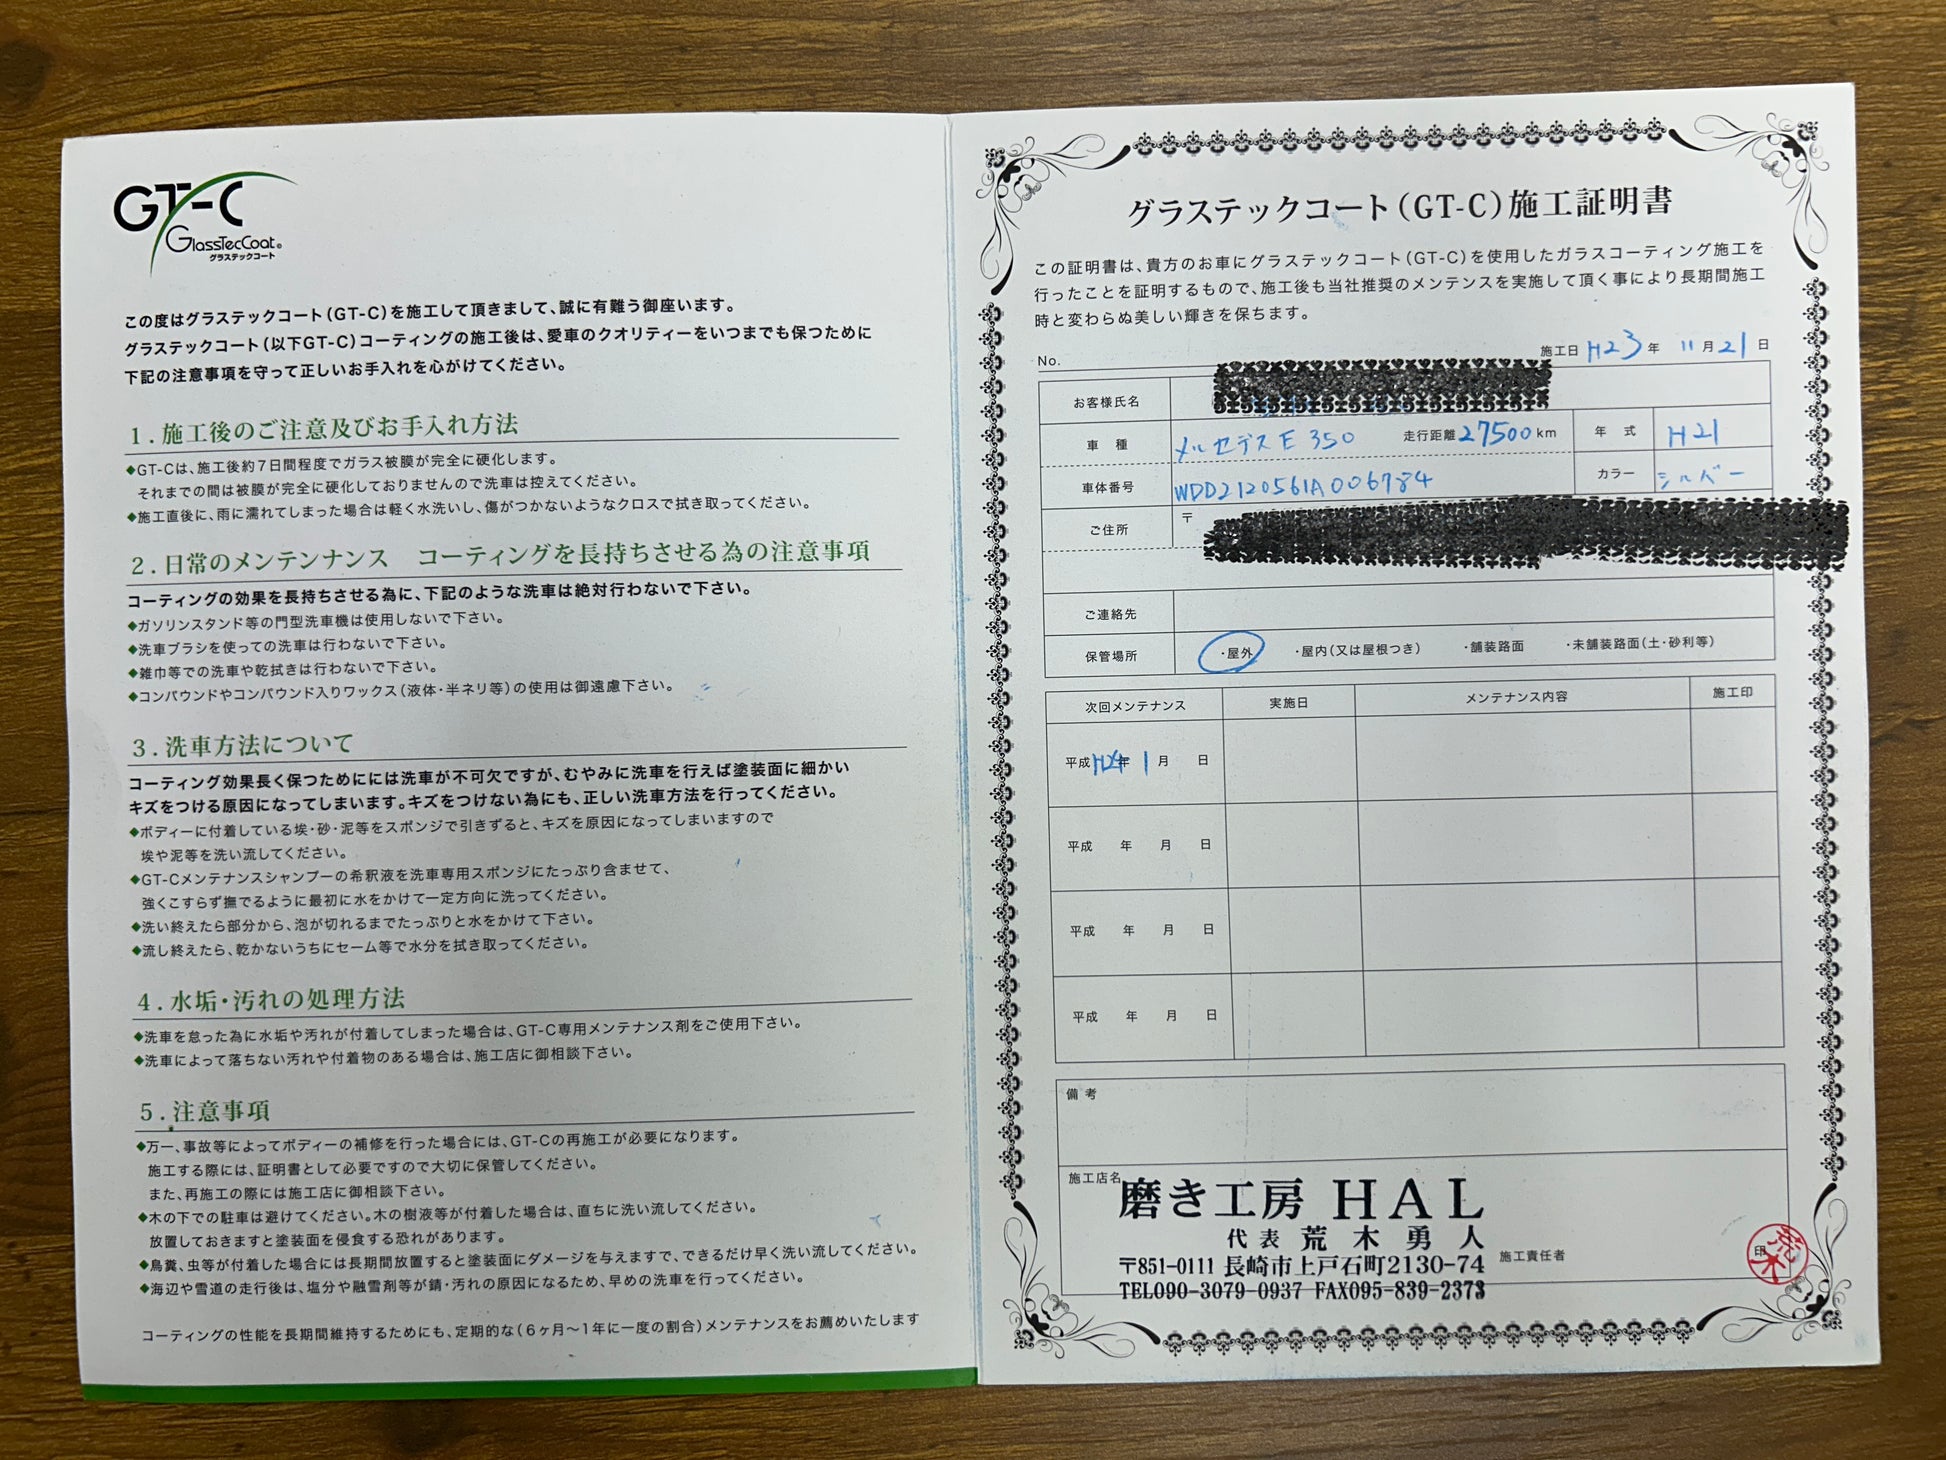 GT-C
GlassTecCoat®
グラステックコート
この度はグラステックコート(GT-C)を施工して頂きまして、誠に有難う御座います。
グラステックコート(以下GT-C)コーティングの施工後は、愛車のクオリティーをいつまでも保つために
下記の注意事項を守って正しいお手入れを心がけてください。
1.施工後のご注意及びお手入れ方法
◆GT-Cは、施工後約7日間程度でガラス被膜が完全に硬化します。
それまでの間は被膜が完全に硬化しておりませんので洗車は控えてください。
◆施工直後に、雨に濡れてしまった場合は軽く水洗いし、傷がつかないようなクロスで拭き取ってください。
2.日常のメンテンナンス　コーティングを長持ちさせる為の注意事項
コーティングの効果を長持ちさせる為に、下記のような洗車は絶対行わないで下さい。
◆ガソリンスタンド等の門型洗車機は使用しないで下さい。
◆洗車ブラシを使っての洗車は行わないで下さい。
◆雑巾等での洗車や乾拭きは行わないで下さい。
◆コンパウンドやコンパウンド入りワックス(液体・半ネリ等)の使用は御遠慮下さい。
3.洗車方法について
コーティング効果長く保つためにには洗車が不可欠ですが、むやみに洗車を行えば塗装面に細かい
キズをつける原因になってしまいます。キズをつけない為にも、正しい洗車方法を行ってください。
◆ボディーに付着している埃・砂・泥等をスポンジで引きずると、キズを原因になってしまいますので
埃や泥等を洗い流してください。
◆GT-Cメンテナンスシャンプーの希釈液を洗車専用スポンジにたっぷり含ませて、
強くこすらず撫でるように最初に水をかけて一定方向に洗ってください。
◆洗い終えたら部分から、泡が切れるまでたっぷりと水をかけて下さい。
◆流し終えたら、乾かないうちにセーム等で水分を拭き取ってください。
4.水垢・汚れの処理方法
◆洗車を怠った為に水垢や汚れが付着してしまった場合は、GT-C専用メンテナンス剤をご使用下さい。
◆洗車によって落ちない汚れや付着物のある場合は、施工店に御相談下さい。
5.注意事項
◆万一、事故等によってボディーの補修を行った場合には、GT-Cの再施工が必要になります。
施工する際には、証明書として必要ですので大切に保管してください。
また、再施工の際には施工店に御相談下さい。
◆木の下での駐車は避けてください。木の樹液等が付着した場合は、直ちに洗い流してください。
放置しておきますと塗装面を侵食する恐れがあります。
◆鳥糞、虫等が付着した場合には長期間放置すると塗装面にダメージを与えますで、できるだけ早く洗い流してください。
◆海辺や雪道の走行後は、塩分や融雪剤等が錆・汚れの原因になるため、早めの洗車を行ってください。
コーティングの性能を長期間維持するためにも、定期的な(6ヶ月〜1年に一度の割合)メンテナンスをお薦めいたします
グラステックコート(GT-C)施工証明書
この証明書は、貴方のお車にグラステックコート(GT-C)を使用したガラスコーティング施工を
行ったことを証明するもので、施工後も当社推奨のメンテンスを実施して頂く事により長期間施工
時と変わらぬ美しい輝きを保ちます。
No.
施工日 H23 年 11 月 21 日
お客様氏名
車 種 メルセデス E 350 走行距離 27500 km 年 式 H21
車体番号 WDD2120561A006784 カラー シルバー
ご住所 〒
ご連絡先
保管場所 ・屋外 ・屋内(又は屋根つき) ・舗装路面 ・未舗装路面(土・砂利等)
次回メンテナンス 実施日 メンテナンス内容 施工印
平成 年 1 月 日
平成 年 月 日
平成 年 月 日
平成 年 月 日
備 考
施工店名
磨き工房 HAL
代表 荒木勇人
〒851-0111 長崎市上戸石町2130-74
施工責任者
印
荒木
TEL090-3079-0937 FAX095-839-2373